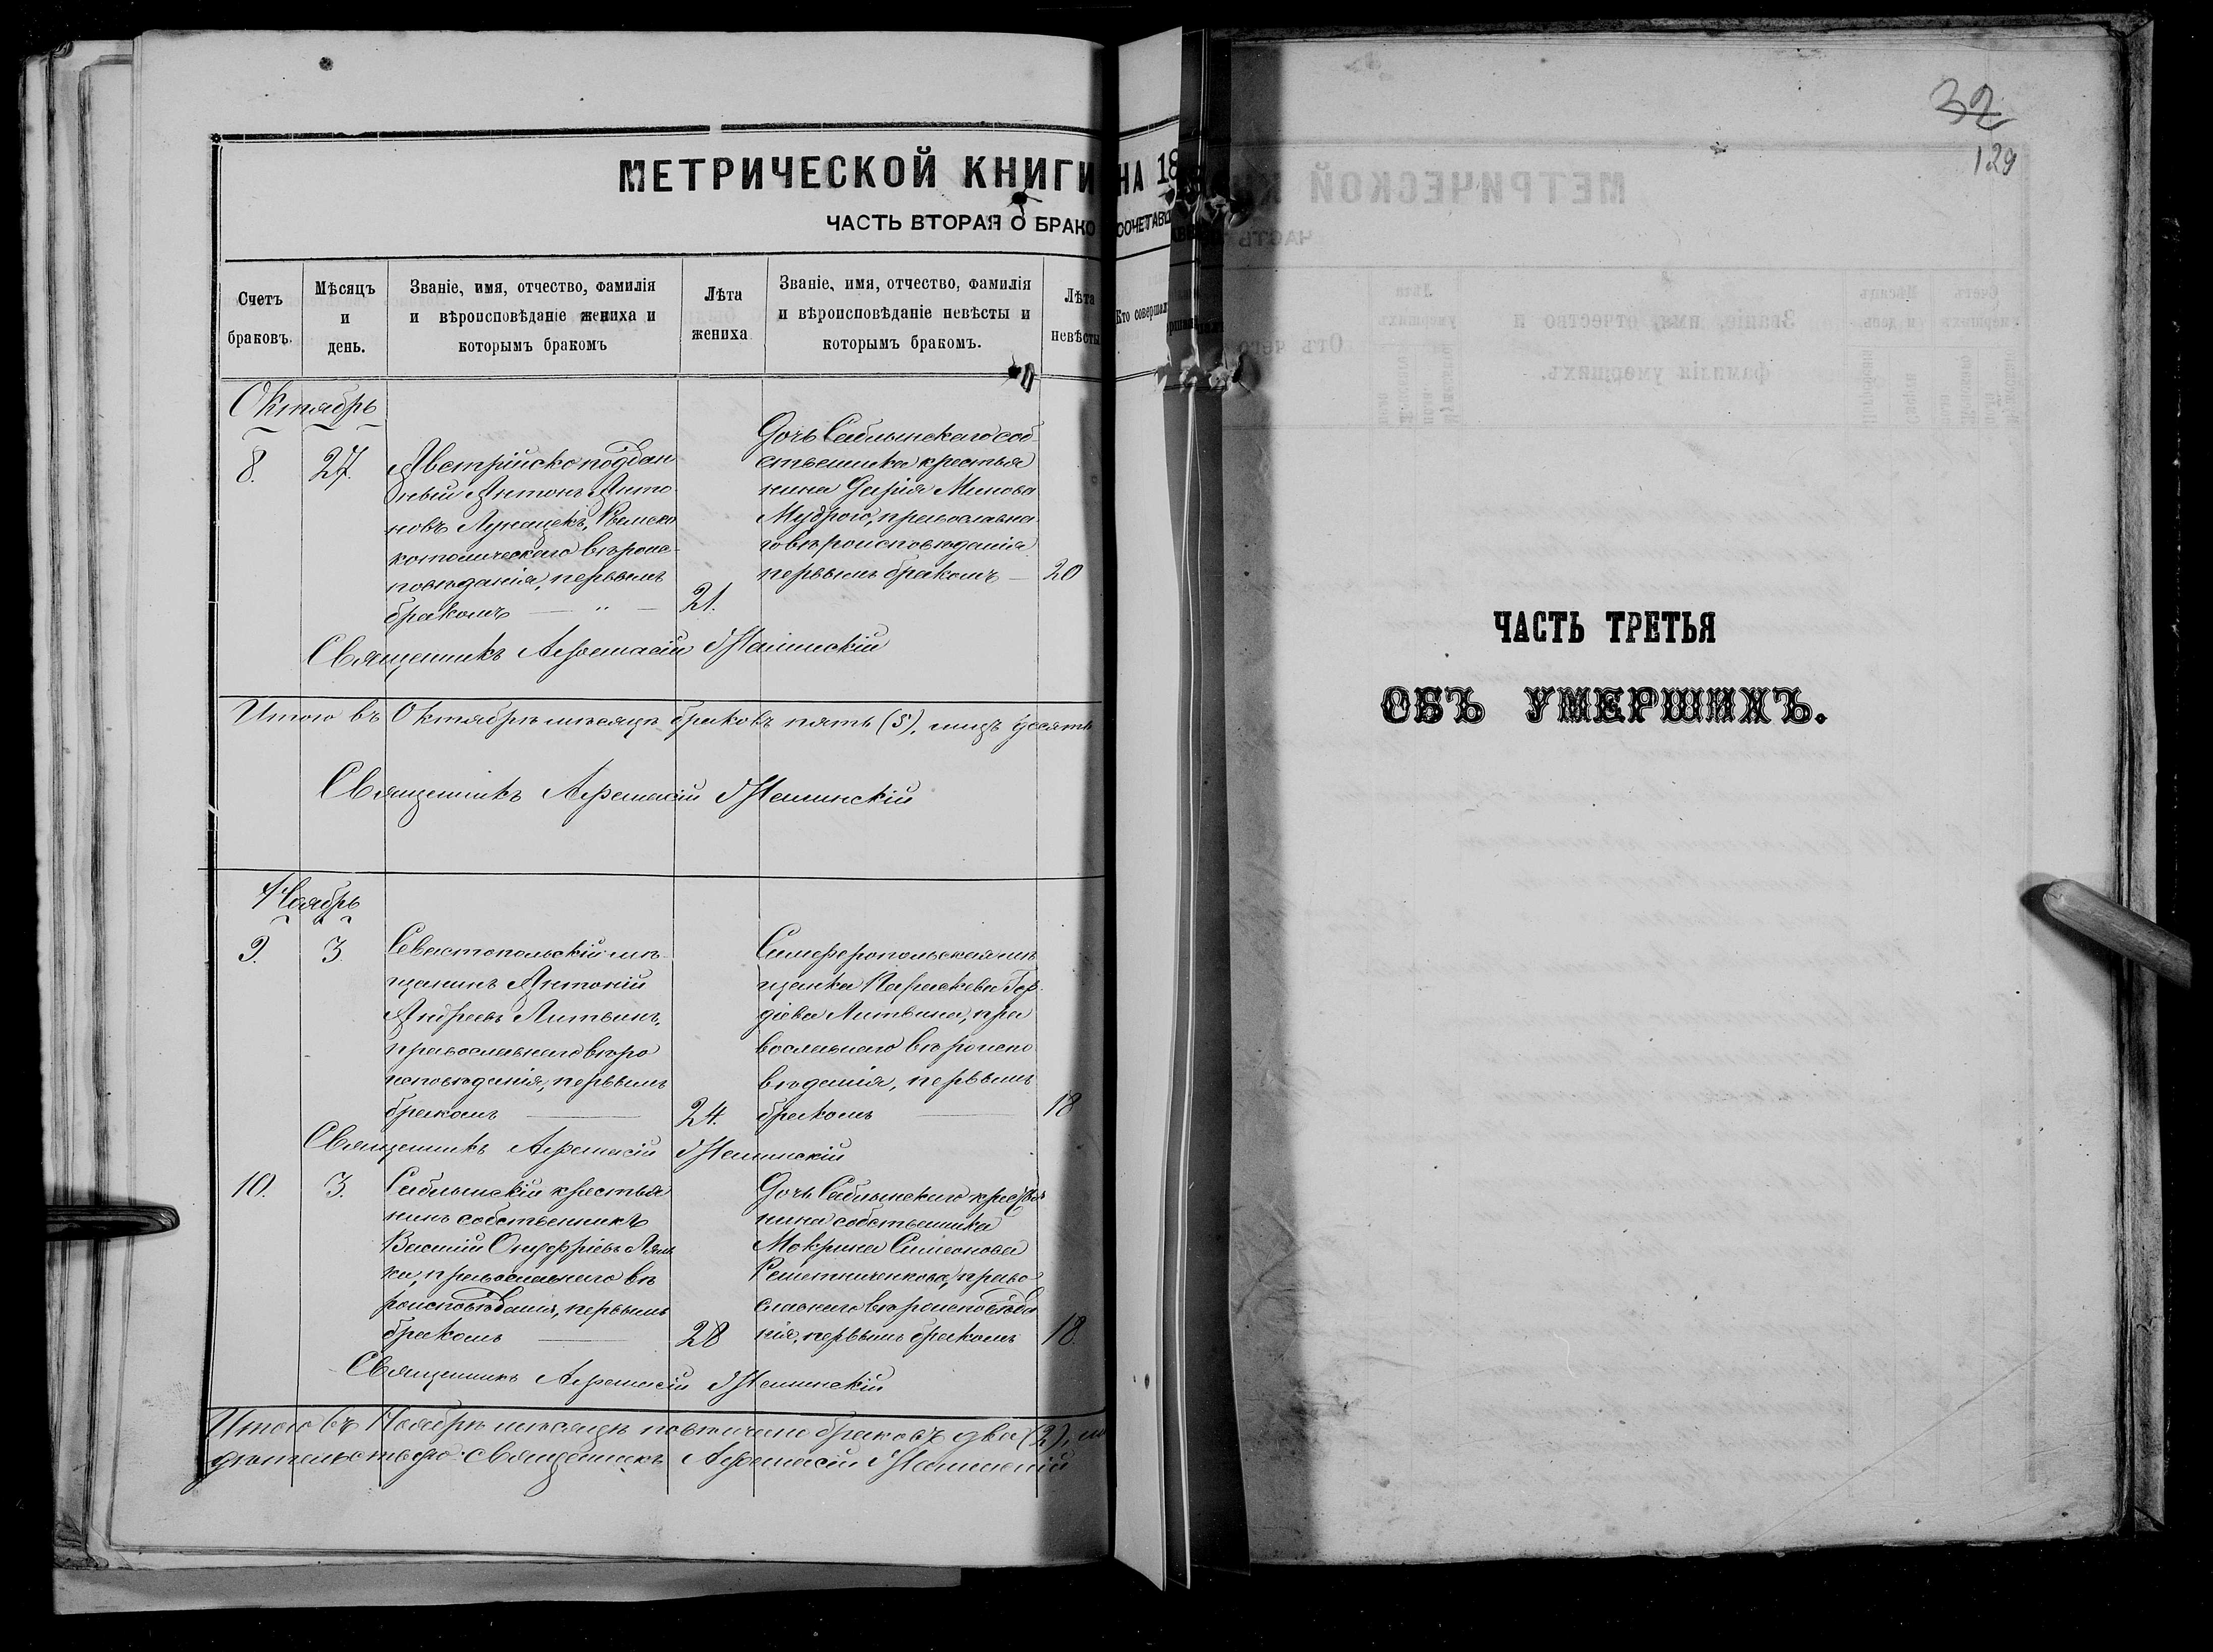 МЕТРИЧЕСКОЙ КНИГИ НА 18
ЧАСТЬ ВТОРАЯ О БРАКОСОЧЕТАВШ
Счетъ браковъ.
Мѣсяцъ и день.
Званіе, имя, отчество, фамилія и вѣроисповѣданіе жениха и которымъ бракомъ
Лѣта жениха
Званіе, имя, отчество, фамилія и вѣроисповѣданіе невѣсты и которымъ бракомъ.
Лѣта невѣсты
Кто совершал
Октябрь
8.
27.
Австрійско поддан
ный Антонъ Анто
новъ Лунацекъ, Римско
католическаго вѣроис-
повѣданія, первымъ
бракомъ — " —
21.
Дочь Саблынскаго соб
ственника крестья
нина Дарія Минова
Мудрого, православна
го вѣроисповѣданія
первымъ бракомъ —
20
Священникъ Афанасій
Итого въ Октябрѣ мѣсяцѣ браковъ пять (5), лицъ десять
Священникъ Афанасій
Ноябрь
9.
3
Севастопольскій мѣ-
щанинъ Антоній
Андреевъ Литвинъ,
православнаго вѣро
исповѣданія, первымъ
бракомъ —
24.
Симферопольская мѣ
щанка Параскева Гор
діева Литвина, пра
вославнаго вѣроиспо
вѣданія, первымъ
бракомъ —
18
Священникъ Афанасій
10.
3.
Саблынскій крестья
нинъ собственникъ
Василій Онуфріевъ
ка, православнаго вѣ
роисповѣданія, первымъ
бракомъ —
28
Дочь Саблынскаго крестья
нина собственника
Макрина Симеонова
Решетниченкова, право-
славнаго вѣроисповѣда
нія, первымъ бракомъ
18.
Священникъ Афанасій
Итого въ Ноябрѣ мѣсяцѣ повѣнчано браковъ два (2),
священникъ Афанасій
32
129
ЧАСТЬ ТРЕТЬЯ
ОБЪ УМЕРШИХЪ.